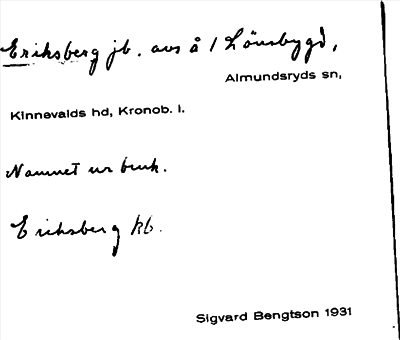 Eriksberg jb. avs å / Lönsbygd,
Almundsryds sn,
Kinnevalds hd, Kronob. l.
Namnet ur bruk.
Eriksberg kb.
Sigvard Bengtson 1931